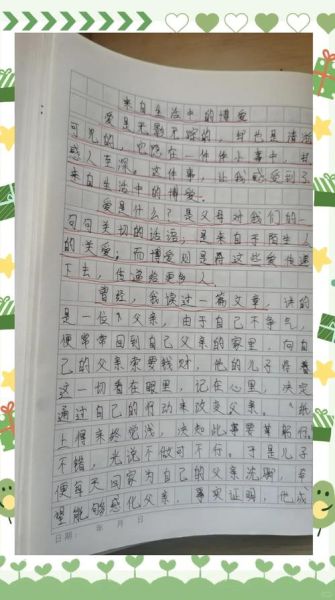 来自生活中的博爱
爱是无影无踪的，却也是清淅
可见的，它隐在一件件小事中，却
感人至深。这件事，让我感受到了
来自生活中的博爱。
爱是什么？是父母对我们的一
句句关切的话语，是来自于陌生人
的关爱，而博爱则是将这些爱传递
下去，传递给更多人。
曾经，我读过一篇文章，讲的
是一位父亲，由于自己不争气，
便常常回到自己父亲的家里，向自
己的父亲索要钱财，他的儿子将着
这一切看在眼里，记在心里，决定
通过自己的行动来改变父亲。“纸
上得来终觉浅，决知此事要躬行。
不错，光说不做可不行。于是儿子
便每天回家为自己的父亲洗脚，希
望能够感化父亲，事实证明，他成
日期： 年 月 日